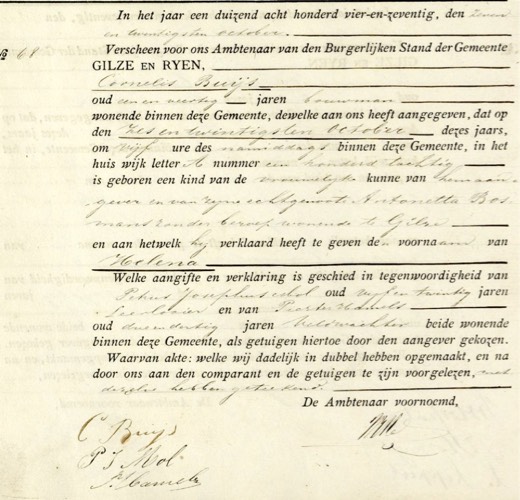 In het jaar een duizend acht honderd vier-en-zeventig, den zeven
en twintigsten october.
No 68 Verscheen voor ons Ambtenaar van den Burgerlijken Stand der Gemeente
GILZE EN RYEN,
Cornelis Buijs
oud een en veertig jaren bouwman
wonende binnen deze Gemeente, dewelke aan ons heeft aangegeven, dat op
den zes en twintigsten October dezes jaars,
om vijf ure des namiddags binnen deze Gemeente, in het
huis wijk letter A nummer een honderd tachtig
is geboren een kind van de vrouwelijke kunne van hem aan-
gever en van zijne echtgenoote Antonetta Bos
mans zonder beroep wonende te Gilze
en aan hetwelk hij verklaard heeft te geven den voornaam van
Helena
Welke aangifte en verklaring is geschied in tegenwoordigheid van
Petrus Josephus Mol oud vijf en twintig jaren
Leerlooier en van Pieter Hamels
oud drie en dertig jaren veldwachter beide wonende
binnen deze Gemeente, als getuigen hiertoe door den aangever gekozen.
Waarvan akte: welke wij dadelijk in dubbel hebben opgemaakt, en na
door ons aan den comparant en de getuigen te zijn voorgelezen, met
dezelve hebben geteekend.
De Ambtenaar voornoemd,
C Buijs
P J Mol
P. Hamels